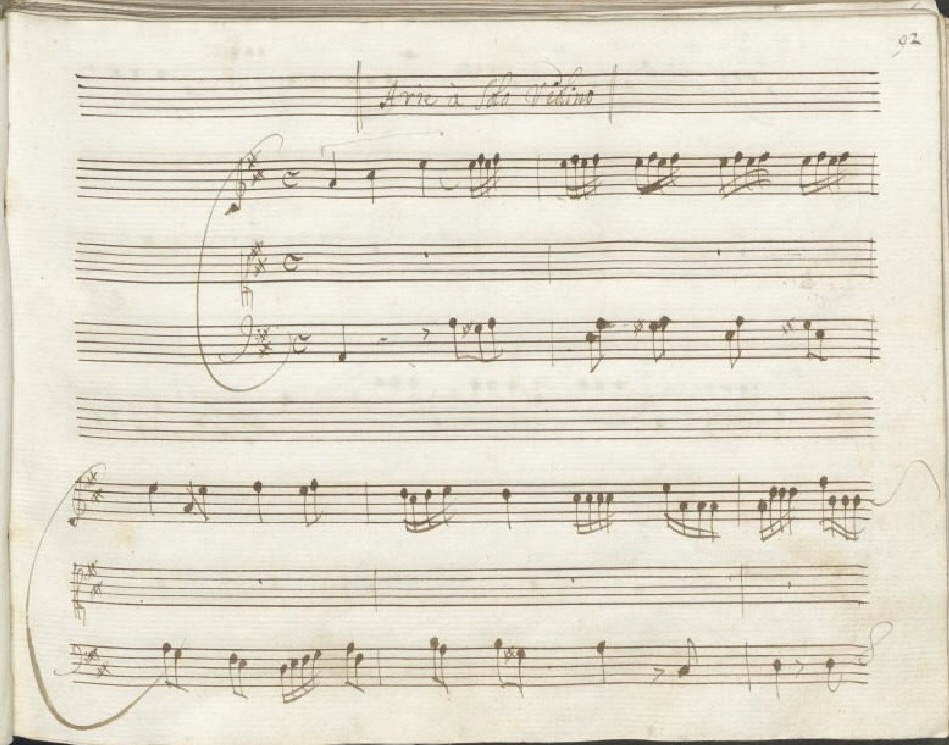 92
Arie à Solo Violino